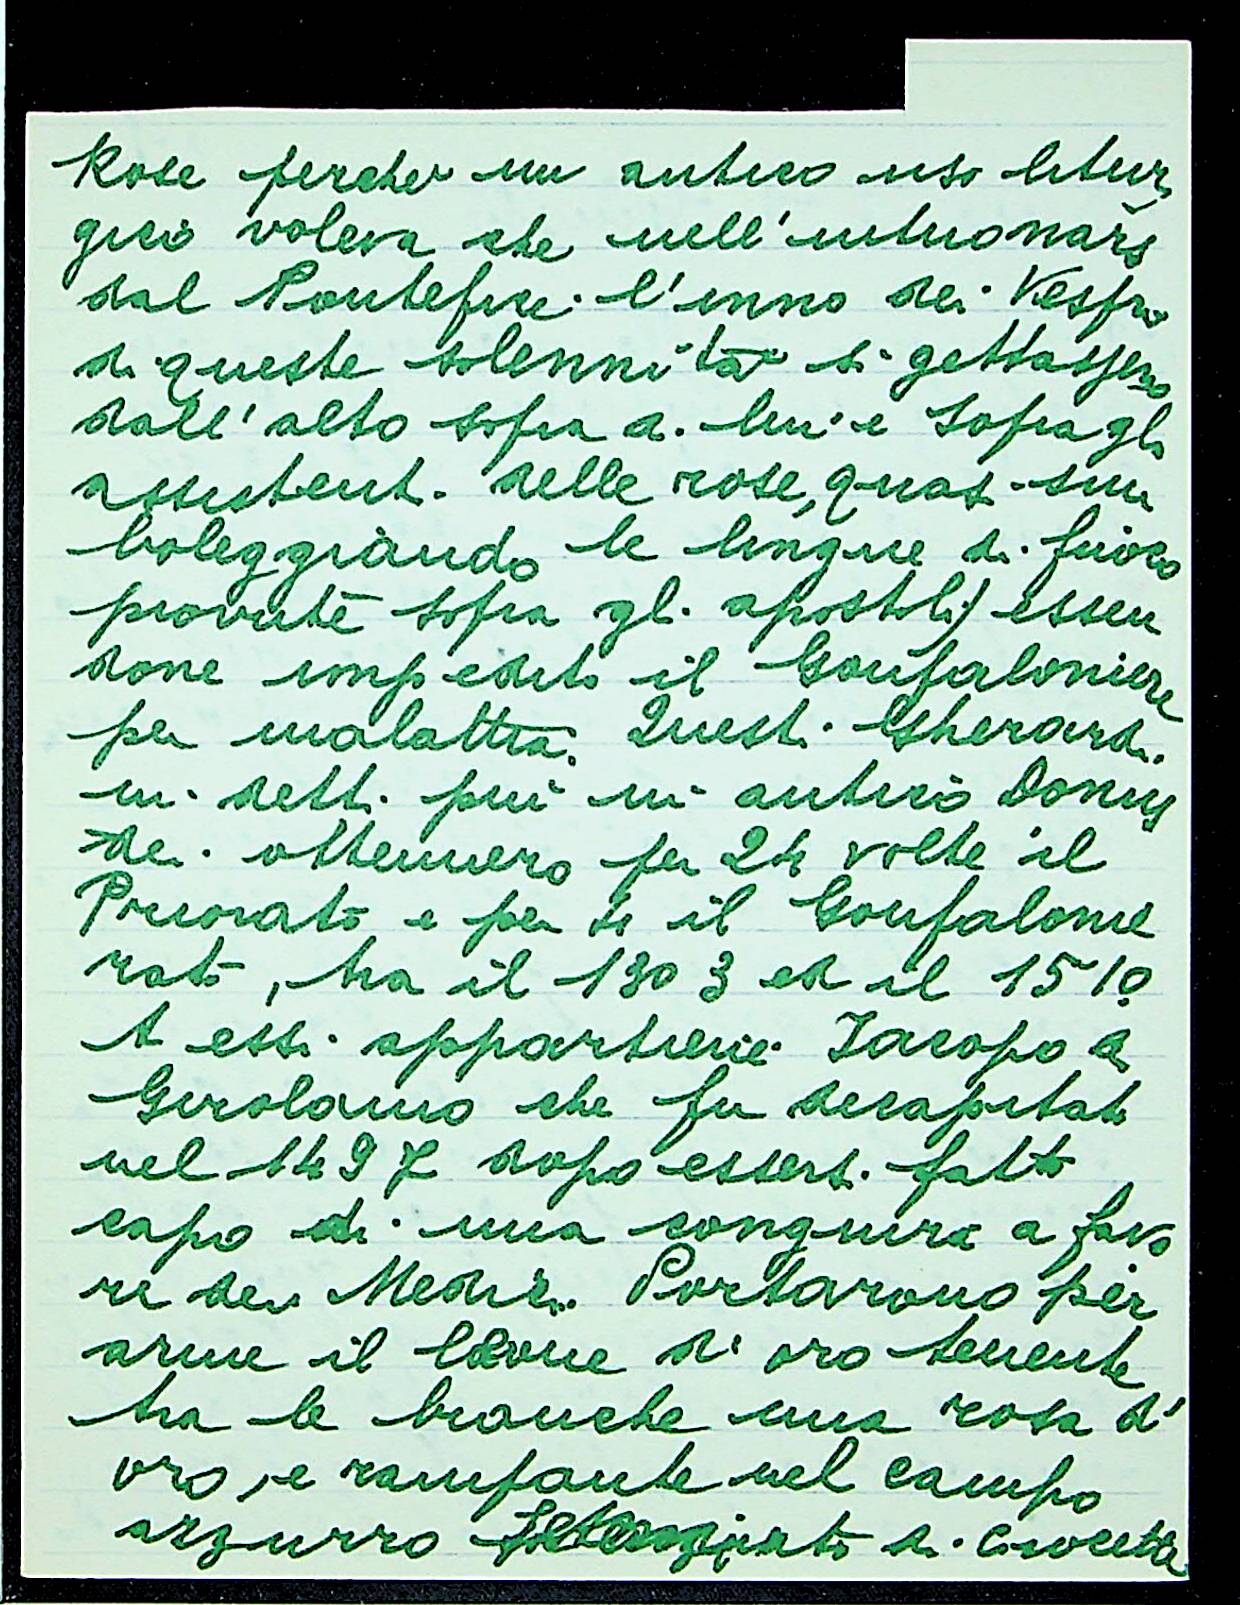 Rose perché un antico uso litur
gico voleva che nell'intuonarsi
dal Pontefice l'inno dei Vespri
di queste solennità si gettassero
dall'alto sopra a lui e sopra gli
assistenti delle rose, quasi sim
boleggiando le lingue di fuoco
piovute sopra gli apostoli) essen
done impedito il Gonfaloniere
per malattia. Questi Gherardi
in detti pui in antico Domus
dei ottennero per 24 volte il
Priorato e per 4 il Gonfalonie
rato, tra il 1303 ed il 1510.
A essi appartiene Iacopo di
Girolamo che fu decapitato
nel 1497 dopo essersi fatto
capo di una congiura a favo
re dei Medici. Portarono per
arme il leone d'oro tenente
tra le branche una rosa d'
oro, e rampante nel campo
azzurro di crocette